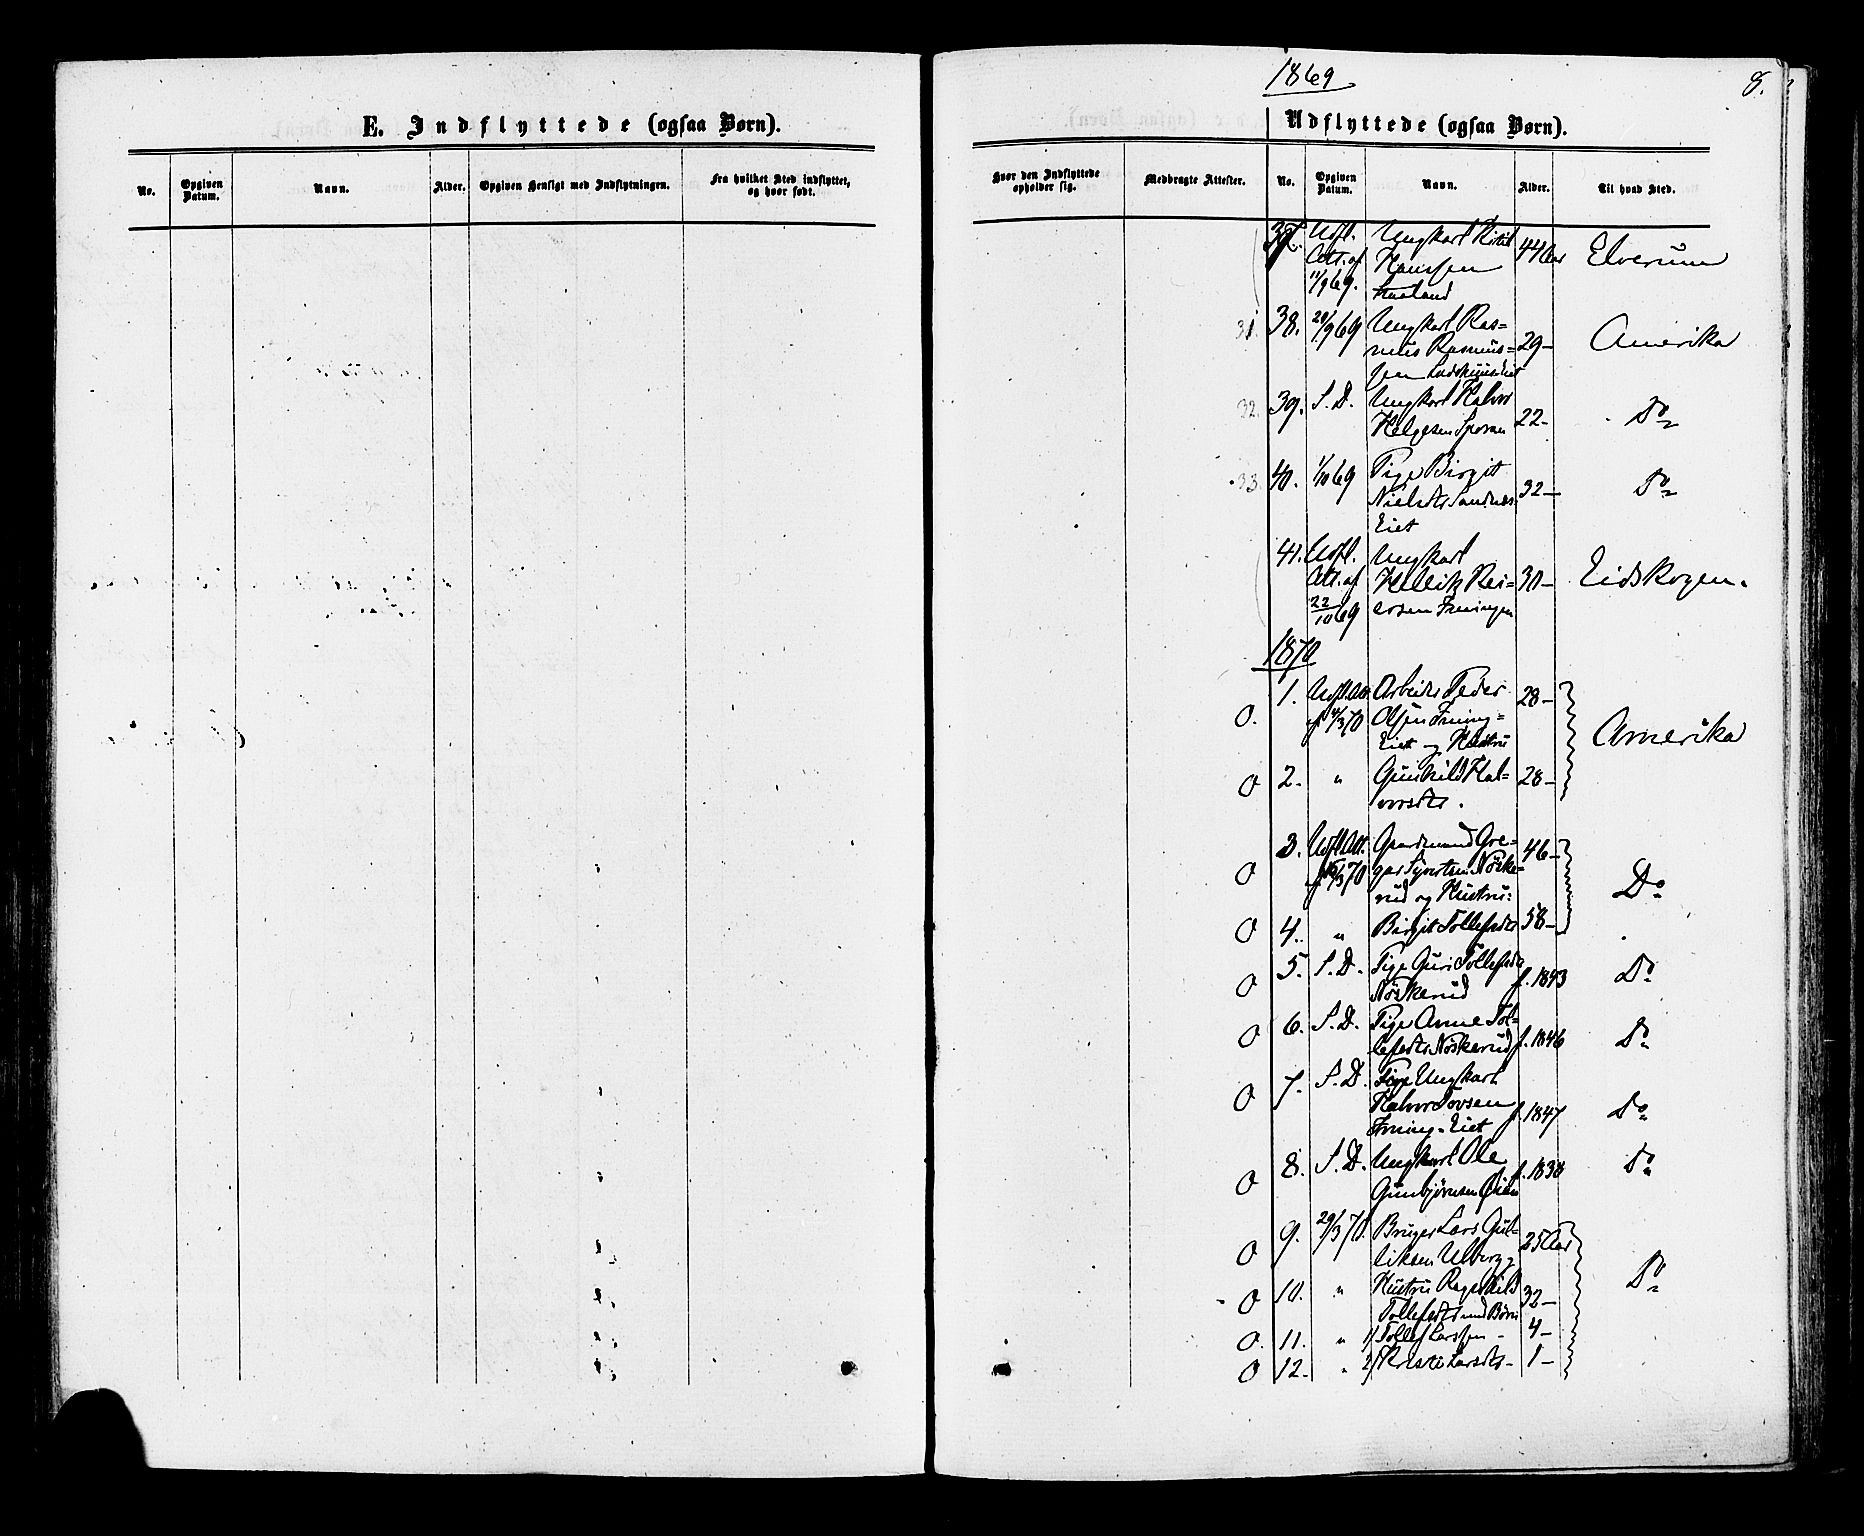 E. Indflyttede (ogsaa Børn).
No.
Opgiven Datum.
Navn.
Alder.
Opgiven Hensigt med Indflytningen.
Fra hvilket Sted indflyttet,
og hvor født.
1869
8.
Udflyttede (ogsaa Børn).
Hvor den Indflyttede
opholder sig.
Medbragte Attester.
No.
Opgiven
Datum.
Navn.
Alder.
Til hvad Sted.
37. Udfl. Ungkarl 44 Aar Elverum
Att. af Hanssen
11/9 69. Haaland
31. 38. 29/9 69 Ungkarl Ras-
mus Rasmus- 29- Amerika
sen
32. 39. S. D. Ungkarl Halvor
Helgesen 22- Do
33. 40. 1/10 69 Pige Birgit
Nielsdtr Sandnes 32- Do
Eiet
41. Udfl. Ungkarl
Att. af 30- Eidskogen.
22/10 69 ersen Fruningen
1870
O. 1. Udfl. Att. Arbeider Peder 28-
af 4/3 70 Olsen Fruning-
Eiet og Hustru Amerika
O 2. " Gunhild Hal- 28-
vorsdtr.
3. Udfl. Att. Gaardmand Gre- 46-
O af 3 70 gar Syvertsen Nøske-
rud og Hustru: Do
O 4. " Birgit Tollefsdtr 58-
O 5. S. D. Pige Guri Tollefsdtr
Nøskerud f. 1843 Do
O 6. S. D. Pige Anne Tol-
lefsdtr Nøskerud f. 1846 Do
O 7. S. D. Ungkarl
Halvor Tovsen f. 1847 Do
Fruning-Eiet
O 8. S. D. Ungkarl Ole f. 1838 Do
Gunbjørnsen
O 9. 29/3 70. Bruger Lars Gul- 25 Aar
liksen Ulberg
O 10. " Hustru Ragnhild 32- Do
Tollefsdtr med Børn
O. 11. " 1) Tollef Larssen - 4-
O 12. " 2) Kristi Larsdtr - 1-